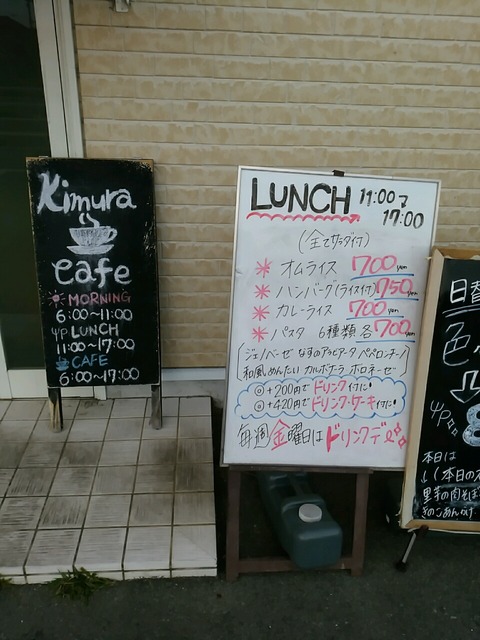 Kimura
Cafe
MORNING
6:00~11:00
LUNCH
11:00~17:00
CAFE
6:00~17:00
LUNCH 11:00
17:00
(全てサラダ付)
* オムライス 700yen
* ハンバーグ(ライス付)750yen
* カレーライス 700yen
* パスタ 6種類各700yen
ジェノベーゼ なすのアラビアータ ペペロンチーノ
和風めんたい カルボナーラ ボロネーゼ
◎ +200円でドリンク付に!
◎ +420円でドリンク・ケーキ付に!
毎週金曜日はドリンクデー
日替
色
本日は
↓(本日の